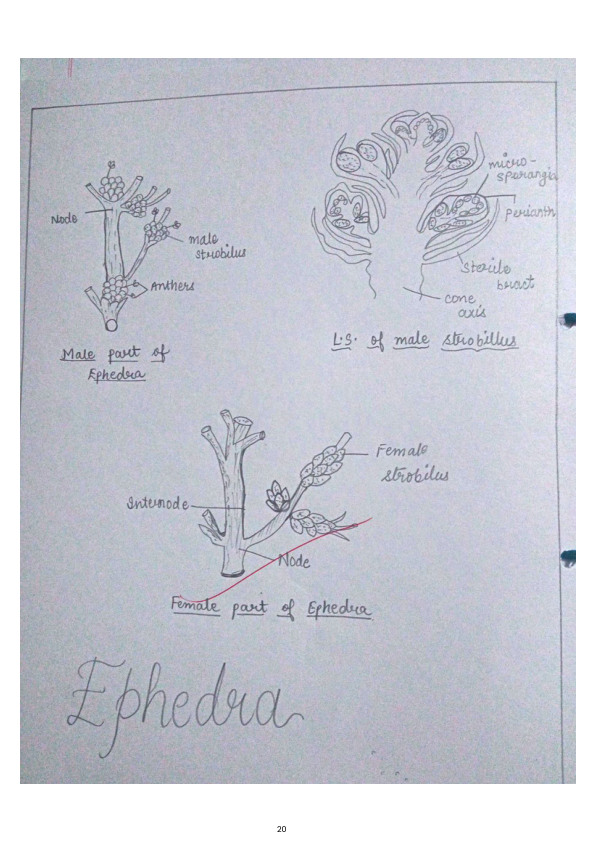 Node
male
strobilus
Anthers
Male part of
Ephedra
micro-
sporangia
Perianth
Sterile
bract
cone
axis
L.S. of male strobillus
Female
strobilus
Internode
Node
Female part of Ephedra
Ephedra
20